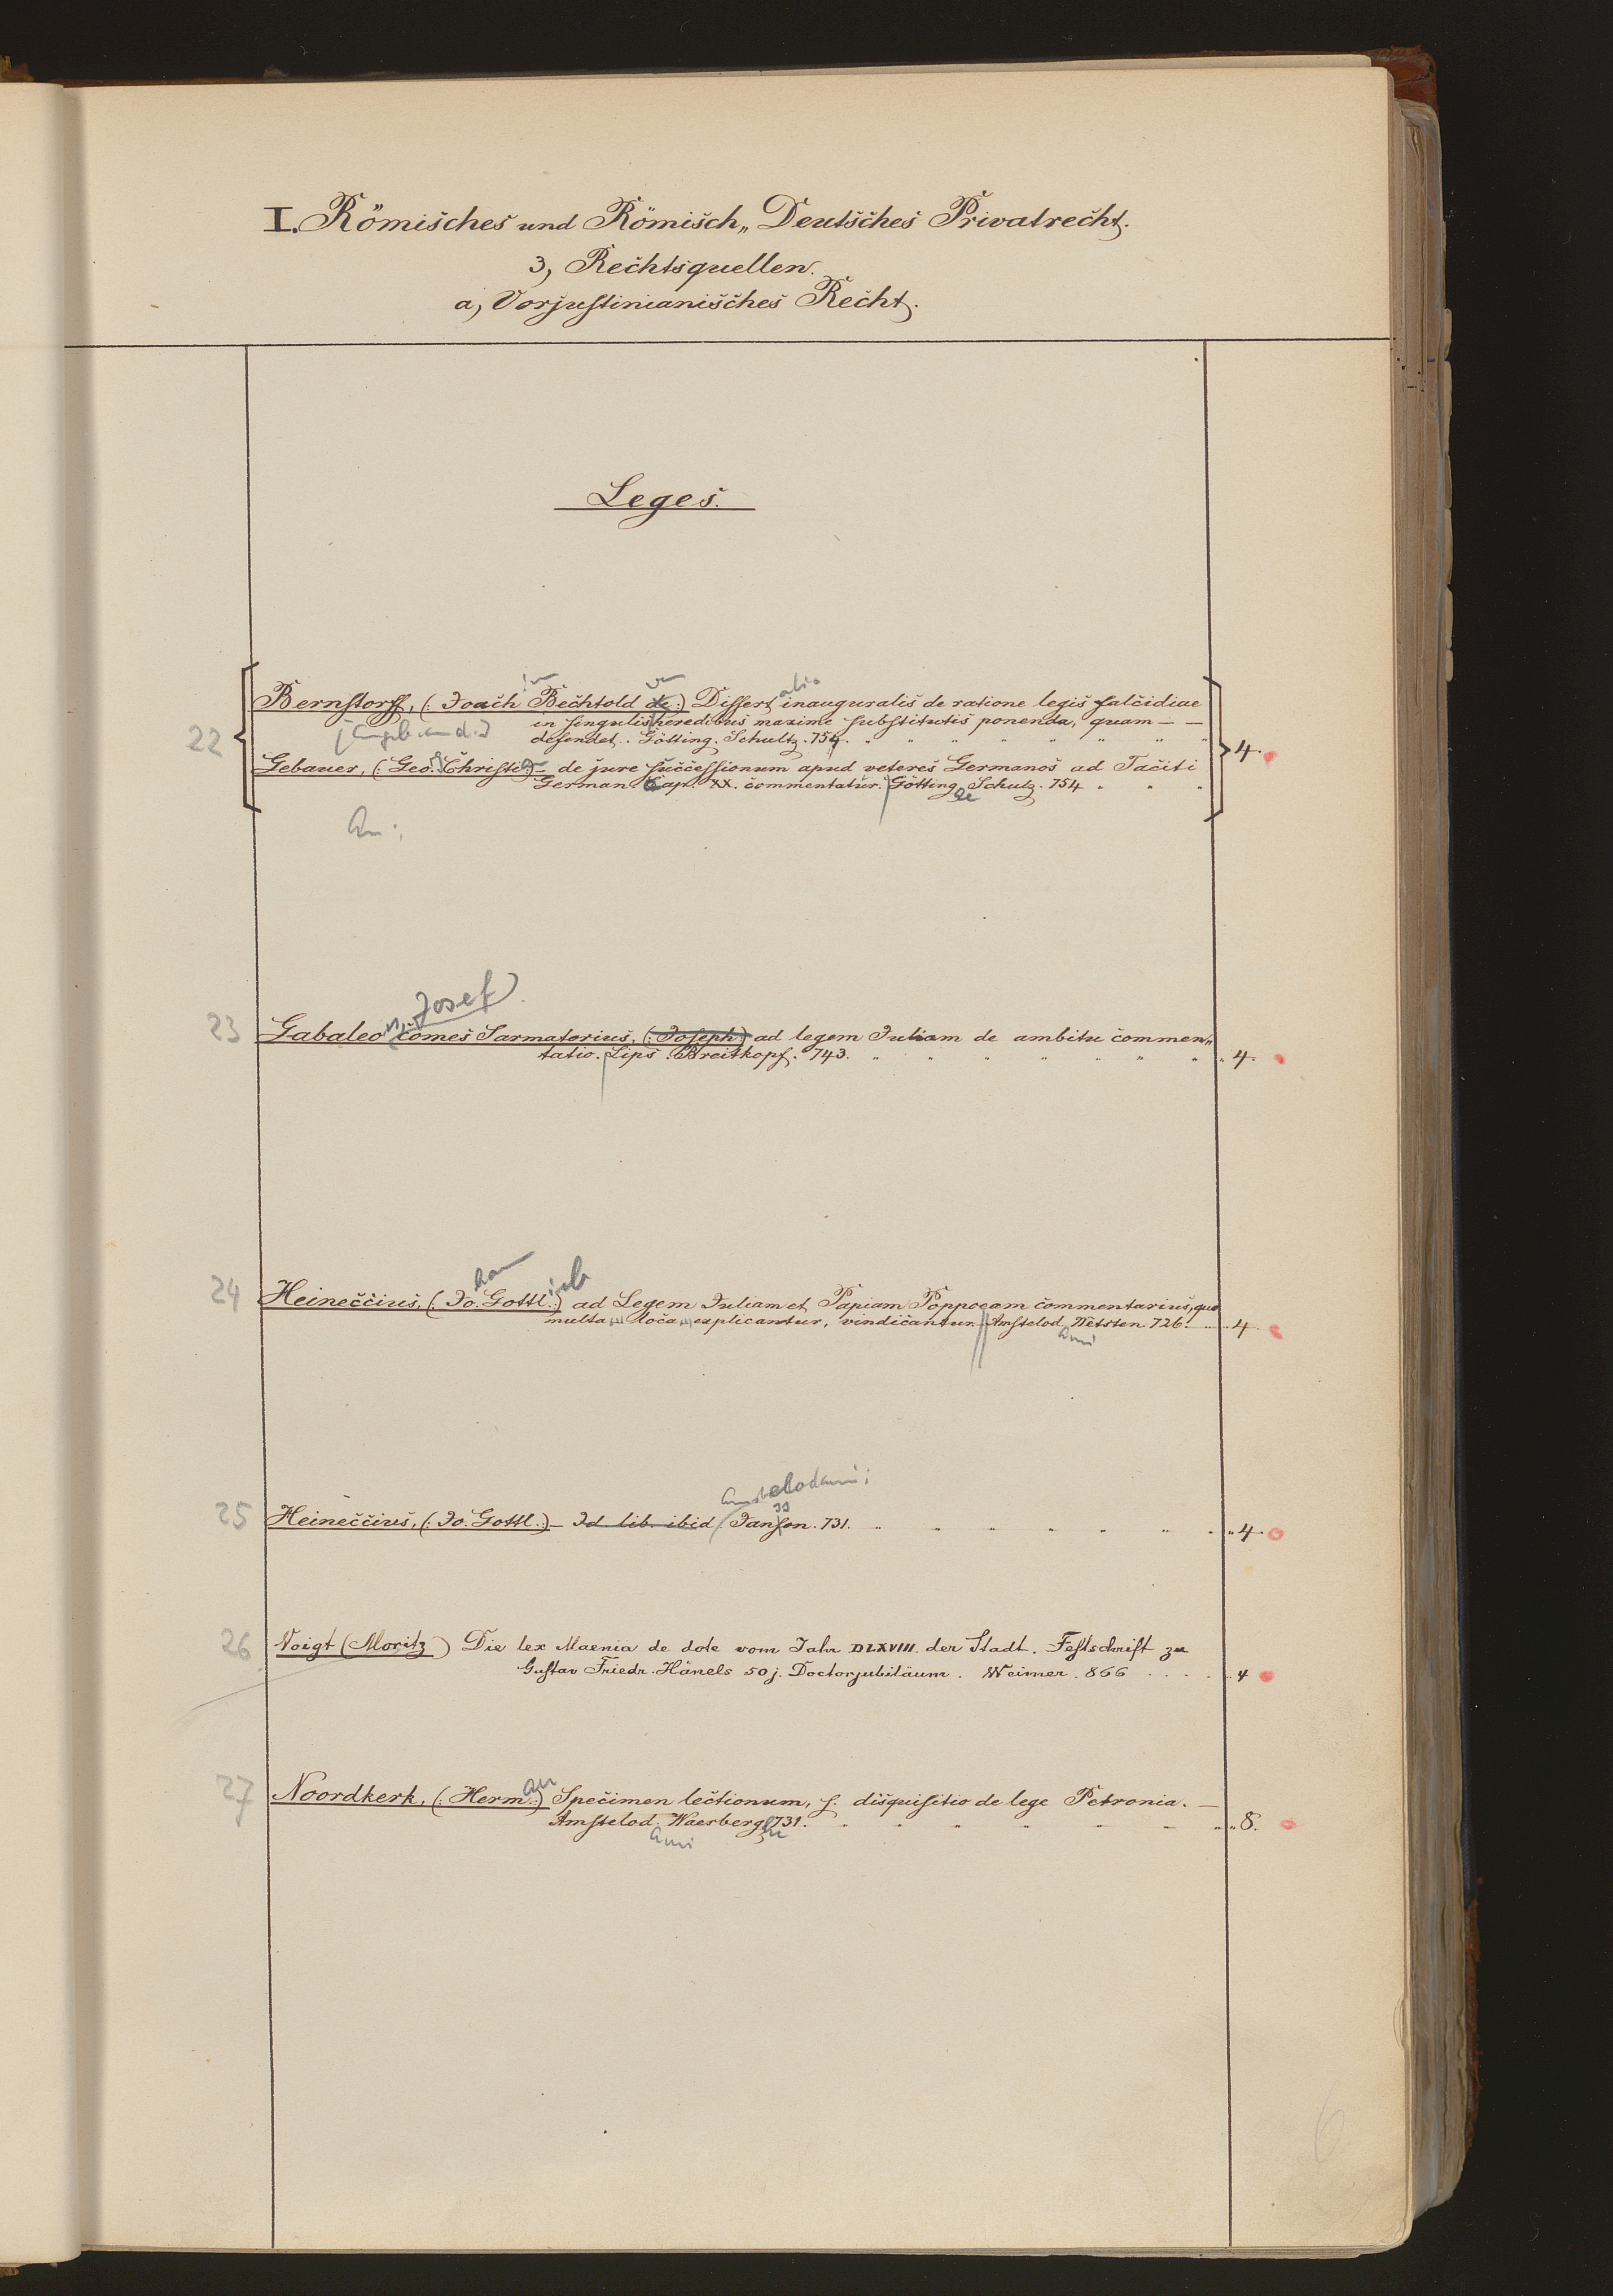 I. Römisches und Römisch„ Deutsches Privatrecht.
3, Rechtsquellen.
a, Vorjustinianisches Recht.
Leges.
22 Bernstorff, (: Joach im Bechtold de :) von Dissert atio inauguralis de ratione legis falcidiae
in singulis heredibus maxime substitutis ponenda, quam — —
defendet. Götting. Schultz. 754. 4.
Gebauer, (: Geo. Christi :) — de jure successionum apud veteres Germanos ad Taciti
German Capt. XX. commentatur. Götting ae Schulz. 754
An:
Josef
23 Gabaleon, comes Sarmatorius, (: Joseph :) ad legem Juliam de ambitu commen„
tatio. Lips. Breitkopf. 743. 4.
24 Heineccius, (: Jo. hann Gottl. ieb :) ad Legem Juliam et Papiam Poppoeam commentarius, quo
multa loca explicantur, vindicantur. Amstelod. ami Wetsten 726. 4.
Amstelodami:
25 Heineccius, (: Jo. Gottl. :) — Id lib. ibid. Jansson. 731. 4.
26 Voigt (Moritz) Die lex Maenia de dote vom Jahr DLXVIII. der Stadt. Festschrift zu
Gustav Friedr. Hänels 50 j. Doctorjubiläum. Weimer. 866 4
27 Noordkerk, (: Herm. an :) Specimen lectionum, s. disquisitio de lege Petronia. —
Amstelod. ami Waesberg 731. 8.
6